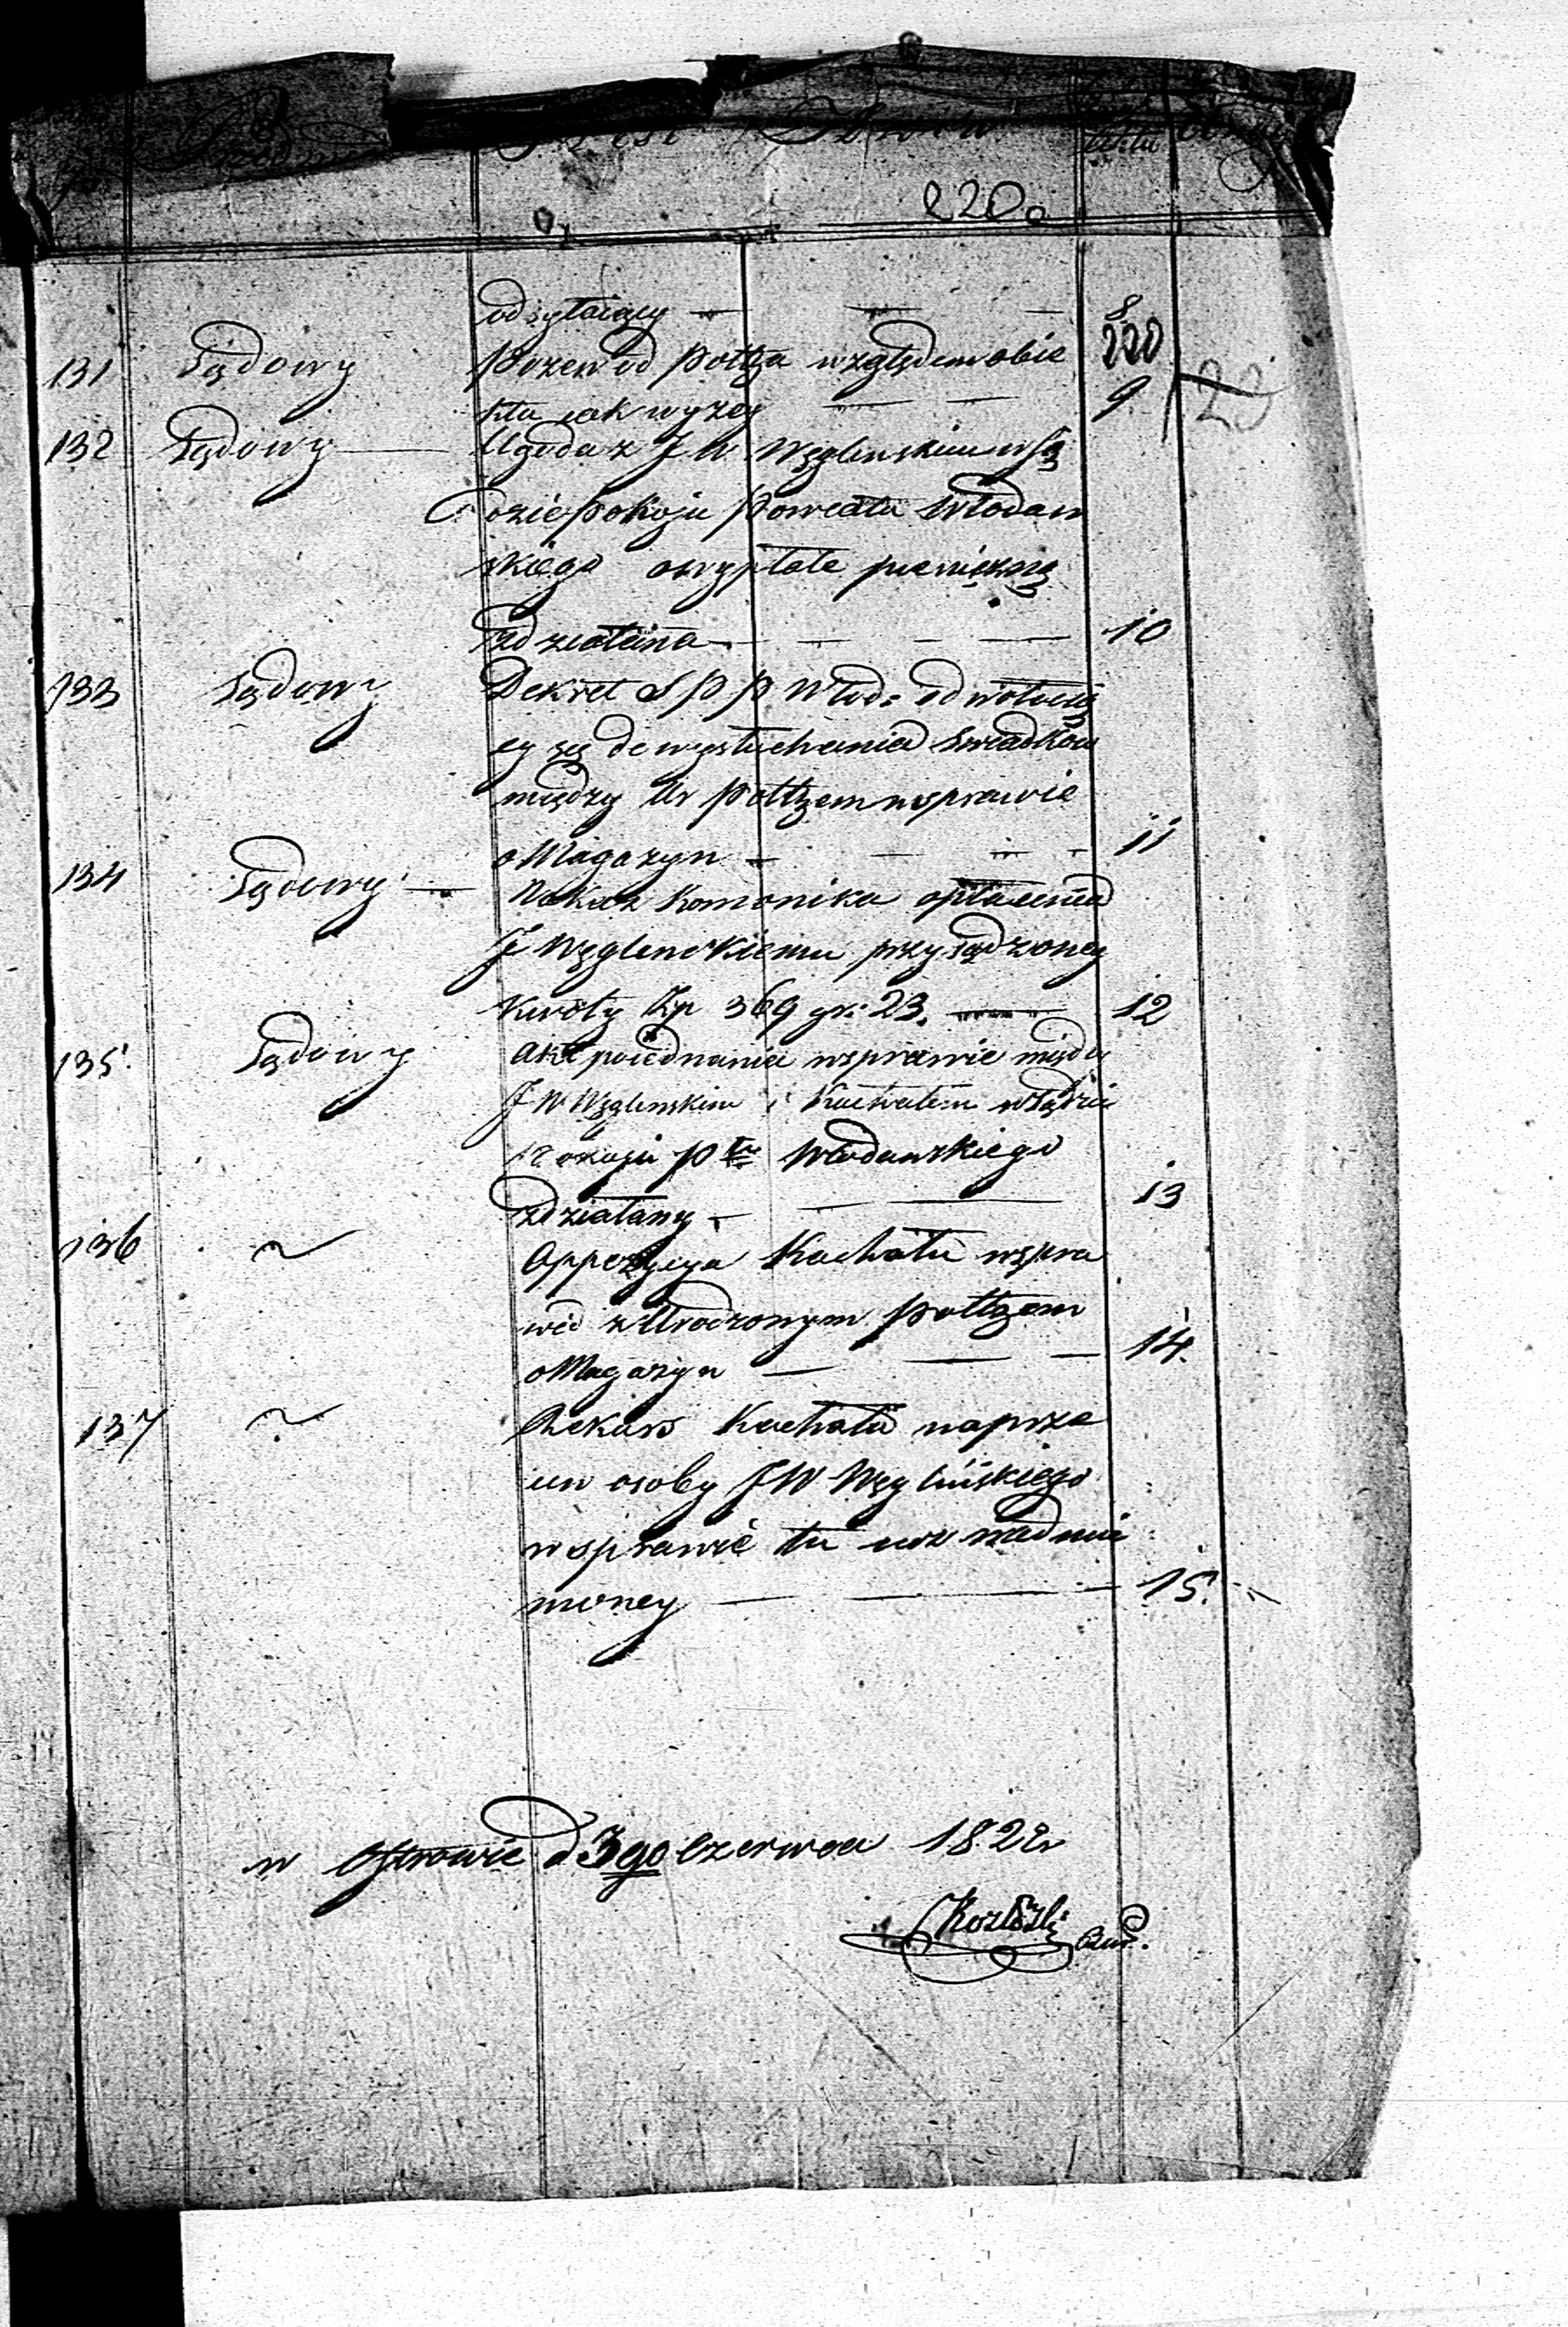 220
odsyłaiący — — — 8
131 Sądowy Pozew od Pottza względem obie 220
ktu jak wyzey — — 9
132 Sądowy — Ugoda z JW. Węglenskim w Są
dzie Pokoju Powiatu Włodaw
skiego o wypłate pieniężną
zdziałaina — — — 10
133 Sądowy Dekret S P P Włod: odwołuią
cy się do wysłuchania Swiadkow
między Ur Pottzem w sprawie
o Magazyn — — — 11
134 Sądowy — Nakaz Komonika opłacenia
J Węglenskiemu przysądzoney
Kwoty Zp 369 gr: 23. — 12
135. Sądowy Akt poiednania w sprawie między
JW Węglenskim i Kachałem w Sądzie
Pokoju Ptu Włodawskiego
zdziałany — — 13
136 ~ Oppozycya Kachała w spra
wie z Urodzonym Pottzem
o Magazyn — — — 14.
137 ~ Rekurs Kachała naprze
ciw osoby JW Węglińskiego
w sprawie tu
money — — 15.
w Ostrowie d 3go Czerwca 182